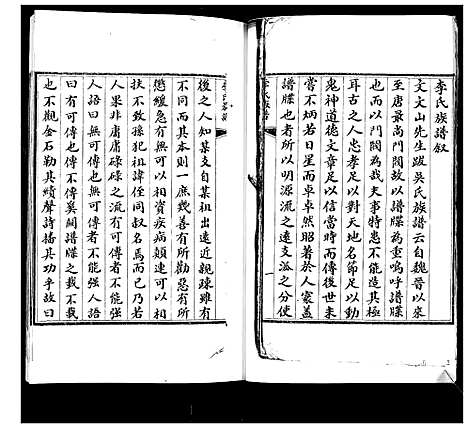 李氏族譜叙
文文山先生跋吳氏族譜云自魏晉以來
至唐最尚門閥故以譜牒為重嗚呼譜牒
也而以門閥為哉夫事特患不能造其極
耳古之人忠孝足以對天地名節足以動
鬼神道德文章足以信當時而傳後世未
嘗不炳若日星而卓卓然照著於人寰蓋
譜牒也者所以明源流之遠支派之分使
後之人知某支自某祖出遠近親疎雖有
不同而其本則一庶幾善有所勸惡有所
懲緩急可以相資疾病顛連可以相
扶不致孫犯祖諱侄同叔名焉而已乃若
人果非庸庸碌碌之流有可傳者不能使
人語曰無可傳也無可傳者不能强人語
曰有可傳也傳不傳奚關譜牒之載不載
也不觀金石勒其績聲詩播其功乎故曰